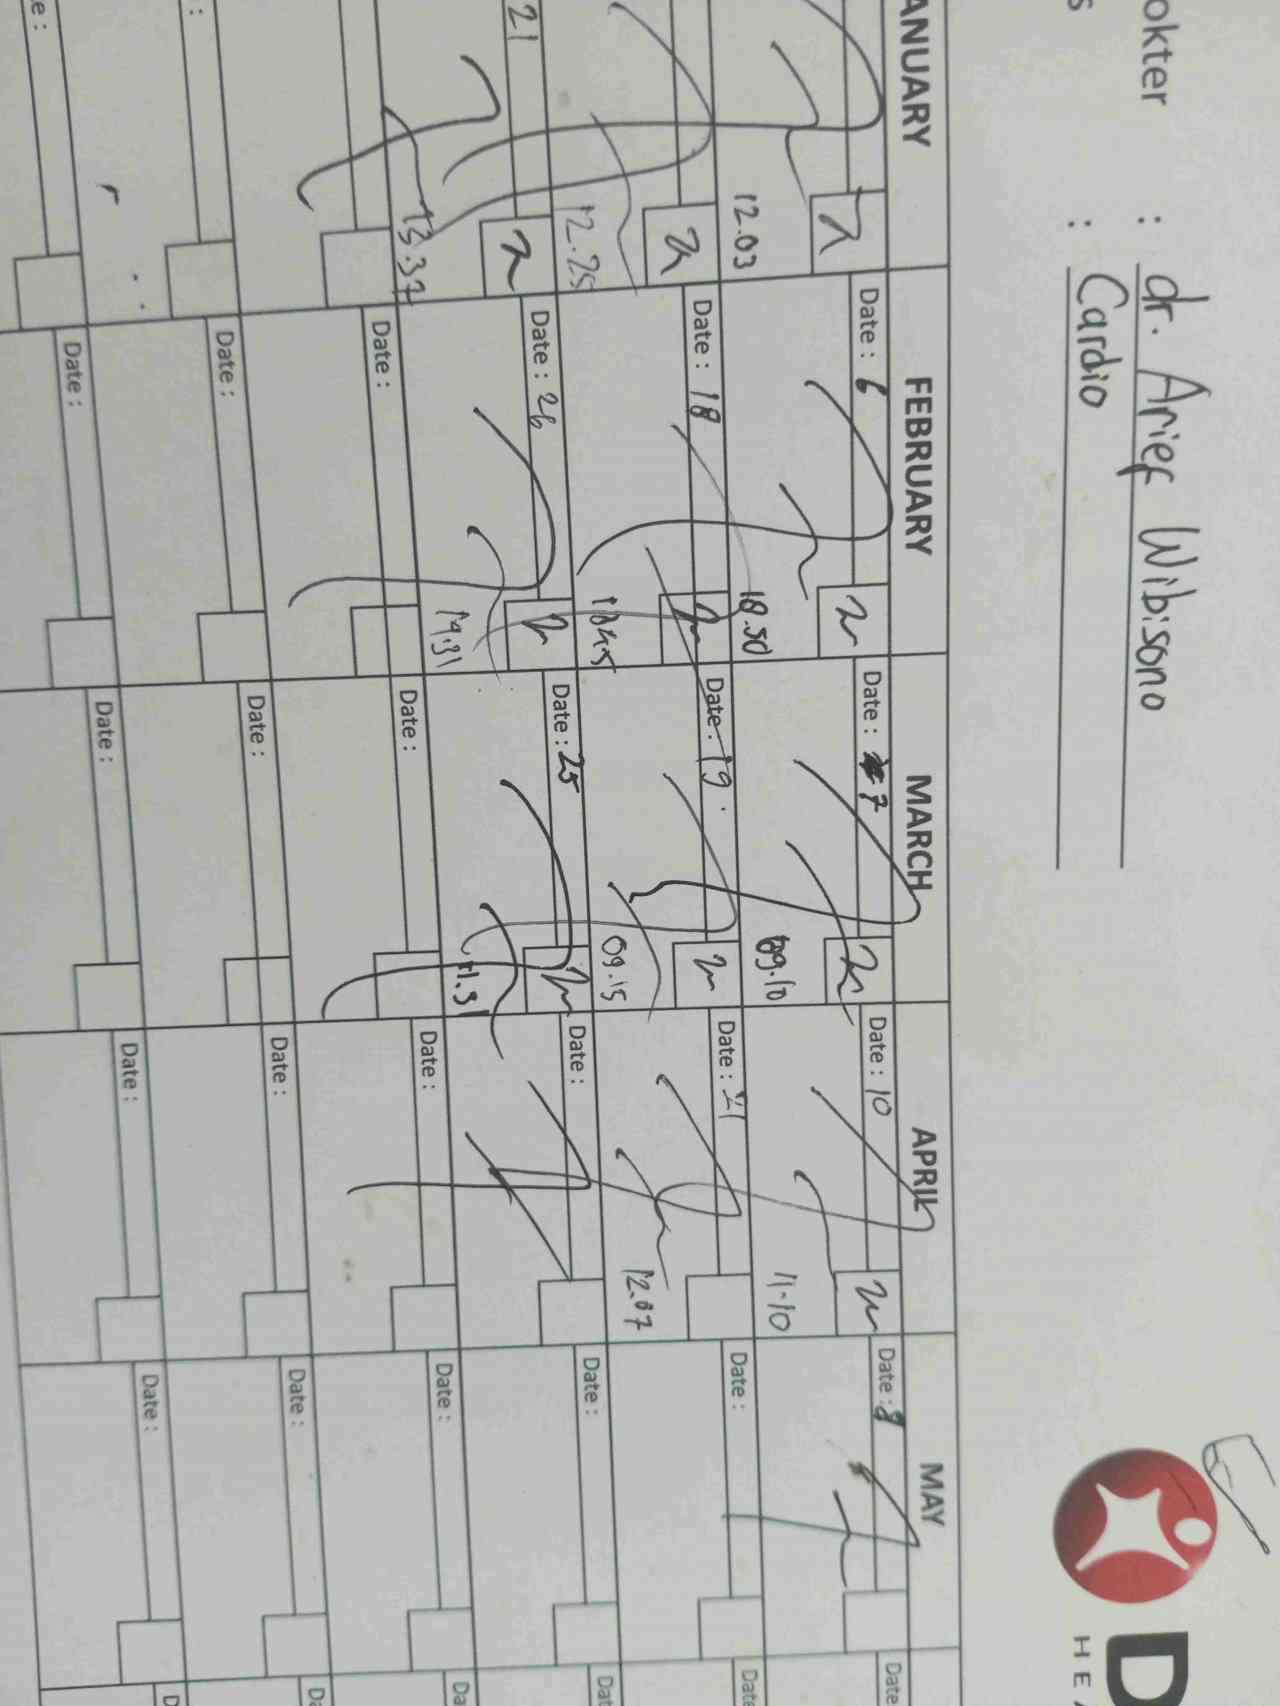 okter : dr. Arief Wibisono
s : Cardio
D
HEA
ANUARY FEBRUARY MARCH APRIL MAY
Date : 6 Date : 7 Date : 10 Date : 8 Date
12.03 18.50 09.10 11.10
Date : 18 Date : 19 Date : 21 Date : Date
12.25 1845 09.15 12.07
21 Date : 26 Date : 25 Date : Date : Dat
13.37 19.31 11.31
Date : Date : Date : Date : Da
: Date : Date : Date : Date : Da
e : Date : Date : Date : Date : D